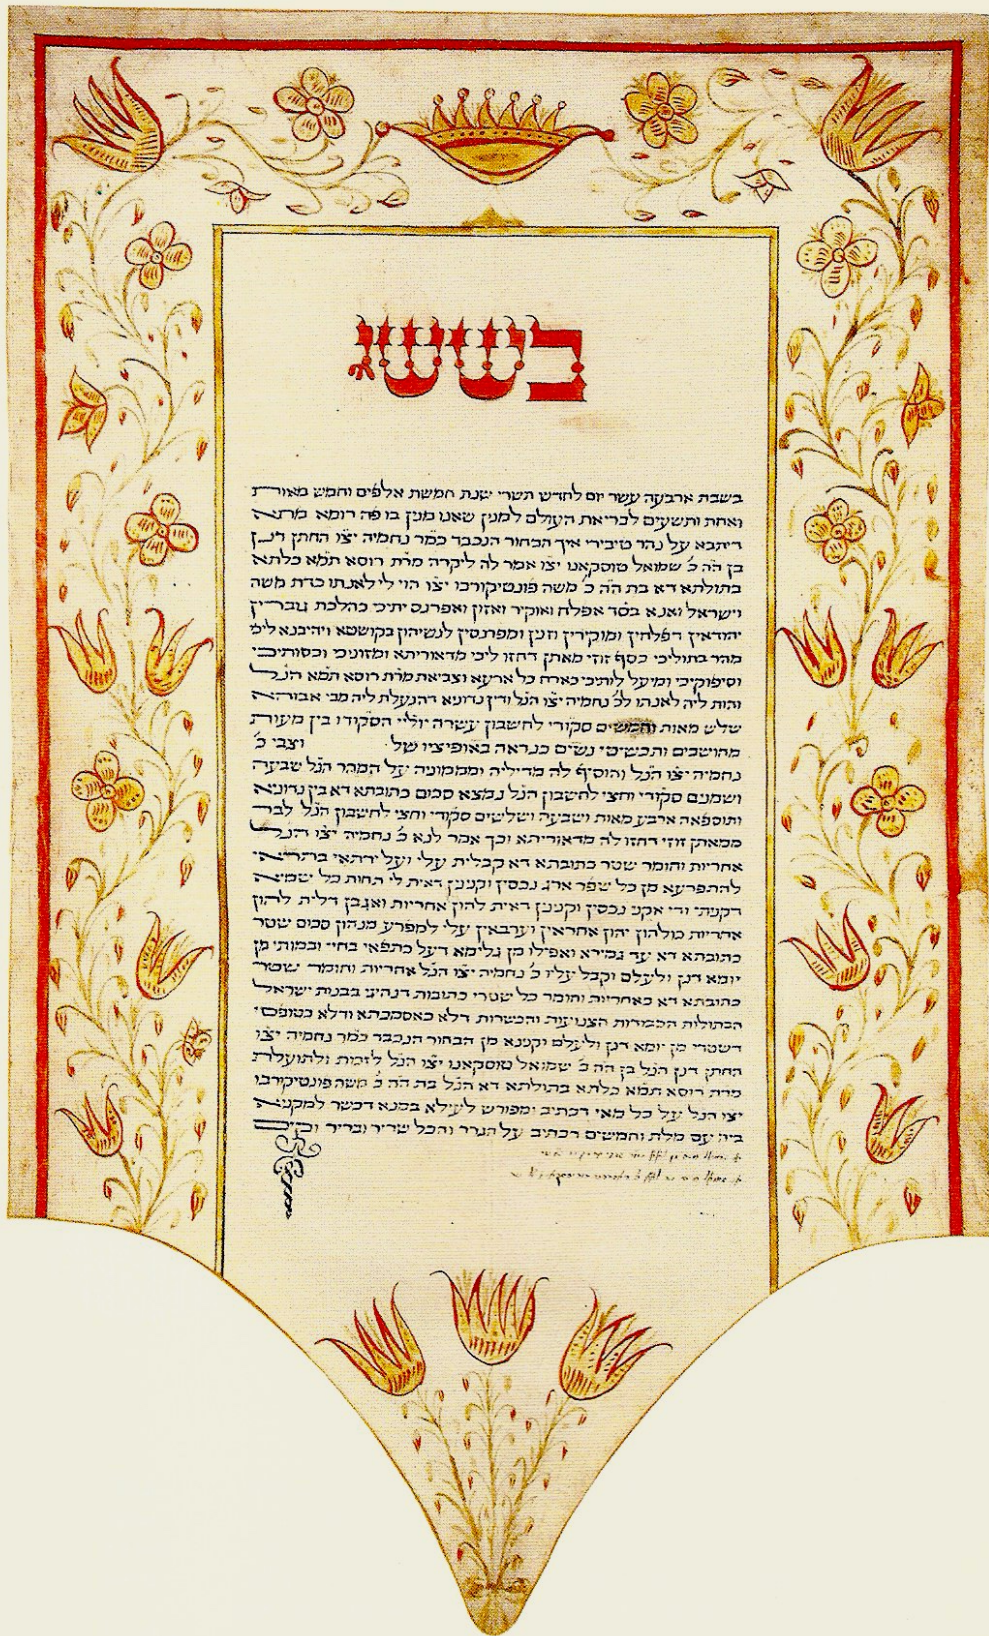 בששי
בשבת ארבעה עשר יום לחדש תשרי שנת חמשת אלפים וחמש מאות
ואחת ותשעים לבריאת העולם למנין שאנו מנין בו פה רומא מתא
דיתבא על נהר טיבירי איך הבחור הנכבד כמ̇ר נחמיה יצ̇ו החתן דנן
בן הה̇ כ׳ שמואל טוסקאנו יצ̇ו אמר לה ליקרה מר̇ת רוסא תמ̇א כלתא
בתולתא דא בת הה̇ כ׳ משה פונטיקורבו יצ̇ו הוי לי לאנתו כדת משה
וישראל ואנא בסד אפלח ואוקיר ואזון ואפרנס יתיכי כהלכת גוברין
יהודאין דפלחין ומוקירין וזנין ומפרנסין לנשיהון בקושטא ויהיבנא ליכי
מהר בתוליכי כסף זוזי מאתן דחזו ליכי מדאוריתא ומזוניכי וכסותיכי
וסיפוקיכי ומיעל לותיכי כארח כל ארעא וצביאת מר̇ת רוסא תמ̇א הנ̇ל
והות ליה לאנתו לכ׳ נחמיה יצ̇ו הנ̇ל ודין נדוניא דהנעלת ליה מבי אבוה
שלש מאות וחמשים סקודי לחשבון עשרה יולי״י הסקודו בין מעות
מחושבים ותכשיטי נשים כנראה באופיציו של וצבי כ׳
נחמיה יצ̇ו הנ̇ל והוסיף לה מדיליה ומממוניה על המהר הנ̇ל שבעה
ושמנים סקודי וחצי לחשבון הנ̇ל נמצא סכום כתובתא דא בין נדוניא
ותוספאה ארבע מאות ושבעה ושלשים סקודי וחצי לחשבון הנ̇ל לבר
ממאתן זוזי דחזו לה מדאוריתא וכך אמר לנא כ׳ נחמיה יצ̇ו הנ̇ל
אחריות וחומר שטר כתובתא דא קבלית עלי ועל ירתאי בתראי
להתפרעא מן כל שפר ארג נכסין וקנינין דאית לי תחות כל שמיא
דקניתי ודי אקני נכסין וקנינין דאית להון אחריות ואגבן דלית להון
אחריות כולהון יהון אחראין וערבאין עלי למפרע מנהון סכום שטר
כתובתא דא עד גמירא ואפילו מן גלימא דעל כתפאי בחיי ובמותי מן
יומא דנן ולעלם וקבל עליו כ׳ נחמיה יצ̇ו הנ̇ל אחריות וחומר שטר
כתובתא דא כאחריות וחומר כל שטרי כתובות דנהיגי בבנות ישראל
הבתולות הכבודות הצנועות והכשרות דלא כאסמכתא ודלא כטופסי
דשטרי מן יומא דנן ולעלם וקנינא מן הבחור הנכבד כמ̇ר נחמיה יצ̇ו
החתן דנן הנ̇ל בן הה̇ כ׳ שמואל טוסקאנו יצ̇ו הנ̇ל לזכות ולתועלת
מרת רוסא תמ̇א כלתא בתולתא דא הנ̇ל בת הה̇ כ׳ משה פונטיקורבו
יצו הנ̇ל על כל מאי דכתיב ומפורש לעילא במנא דכשר למקניא
ביה עם מלת וחמשים דכתיב על הגרר והכל שריר ובריר וקים